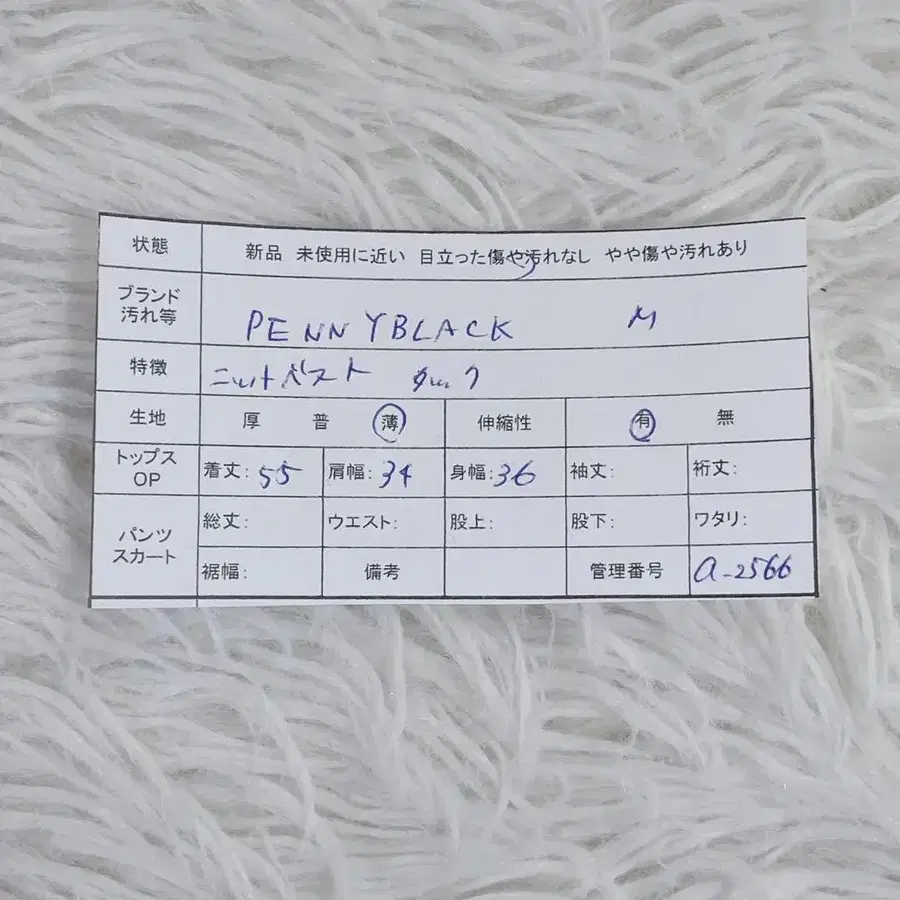 状態 新品 未使用に近い 目立った傷や汚れなし やや傷や汚れあり
ブランド
汚れ等 PENNYBLACK M
特徴 ニットベスト
生地 厚 普 薄 伸縮性 有 無
トップス
OP 着丈: 55 肩幅: 34 身幅: 36 袖丈: 裄丈:
パンツ
スカート 総丈: ウエスト: 股上: 股下: ワタリ:
裾幅: 備考 管理番号 a-2566